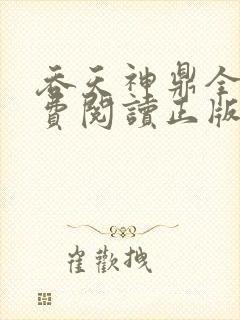 吞天神鼎全
費閱讀正版
崔歡拽